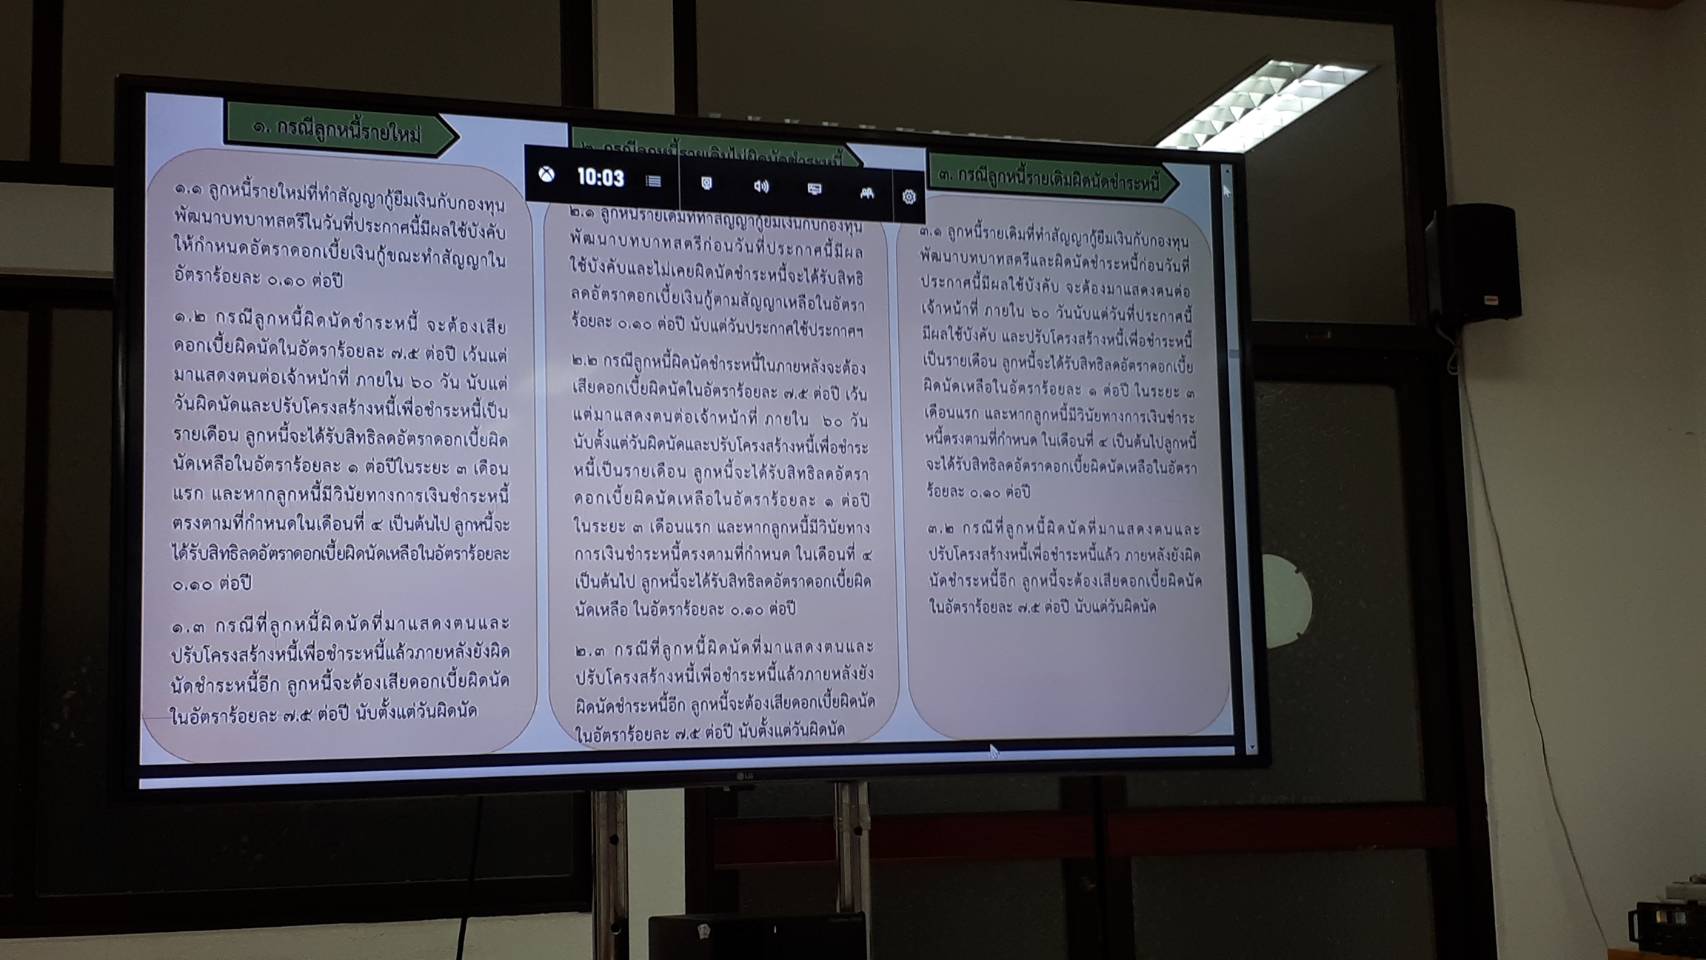 ๑. กรณีลูกหนี้รายใหม่
๑.๑ ลูกหนี้รายใหม่ที่ทำสัญญากู้ยืมเงินกับกองทุน
พัฒนาบทบาทสตรีในวันที่ประกาศนี้มีผลใช้บังคับ
ให้กำหนดอัตราดอกเบี้ยเงินกู้ขณะทำสัญญาใน
อัตราร้อยละ ๐.๑๐ ต่อปี
๑.๒ กรณีลูกหนี้ผิดนัดชำระหนี้ จะต้องเสีย
ดอกเบี้ยผิดนัดในอัตราร้อยละ ๗.๕ ต่อปี เว้นแต่
มาแสดงตนต่อเจ้าหน้าที่ ภายใน ๖๐ วัน นับแต่
วันผิดนัดและปรับโครงสร้างหนี้เพื่อชำระหนี้เป็น
รายเดือน ลูกหนี้จะได้รับสิทธิลดอัตราดอกเบี้ยผิด
นัดเหลือในอัตราร้อยละ ๑ ต่อปีในระยะ ๓ เดือน
แรก และหากลูกหนี้มีวินัยทางการเงินชำระหนี้
ตรงตามที่กำหนดในเดือนที่ ๔ เป็นต้นไป ลูกหนี้จะ
ได้รับสิทธิลดอัตราดอกเบี้ยผิดนัดเหลือในอัตราร้อยละ
๐.๑๐ ต่อปี
๑.๓ กรณีที่ลูกหนี้ผิดนัดที่มาแสดงตนและ
ปรับโครงสร้างหนี้เพื่อชำระหนี้แล้วภายหลังยังผิด
นัดชำระหนี้อีก ลูกหนี้จะต้องเสียดอกเบี้ยผิดนัด
ในอัตราร้อยละ ๗.๕ ต่อปี นับตั้งแต่วันผิดนัด
๒. กรณีลูกหนี้รายเดิมไม่ผิดนัดชำระหนี้
10:03
๒.๑ ลูกหนี้รายเดิมที่ทำสัญญากู้ยืมเงินกับกองทุน
พัฒนาบทบาทสตรีก่อนวันที่ประกาศนี้มีผล
ใช้บังคับและไม่เคยผิดนัดชำระหนี้จะได้รับสิทธิ
ลดอัตราดอกเบี้ยเงินกู้ตามสัญญาเหลือในอัตรา
ร้อยละ ๐.๑๐ ต่อปี นับแต่วันประกาศใช้ประกาศฯ
๒.๒ กรณีลูกหนี้ผิดนัดชำระหนี้ในภายหลังจะต้อง
เสียดอกเบี้ยผิดนัดในอัตราร้อยละ ๗.๕ ต่อปี เว้น
แต่มาแสดงตนต่อเจ้าหน้าที่ ภายใน ๖๐ วัน
นับตั้งแต่วันผิดนัดและปรับโครงสร้างหนี้เพื่อชำระ
หนี้เป็นรายเดือน ลูกหนี้จะได้รับสิทธิลดอัตรา
ดอกเบี้ยผิดนัดเหลือในอัตราร้อยละ ๑ ต่อปี
ในระยะ ๓ เดือนแรก และหากลูกหนี้มีวินัยทาง
การเงินชำระหนี้ตรงตามที่กำหนด ในเดือนที่ ๔
เป็นต้นไป ลูกหนี้จะได้รับสิทธิลดอัตราดอกเบี้ยผิด
นัดเหลือ ในอัตราร้อยละ ๐.๑๐ ต่อปี
๒.๓ กรณีที่ลูกหนี้ผิดนัดที่มาแสดงตนและ
ปรับโครงสร้างหนี้เพื่อชำระหนี้แล้วภายหลังยัง
ผิดนัดชำระหนี้อีก ลูกหนี้จะต้องเสียดอกเบี้ยผิดนัด
ในอัตราร้อยละ ๗.๕ ต่อปี นับตั้งแต่วันผิดนัด
๓. กรณีลูกหนี้รายเดิมผิดนัดชำระหนี้
๓.๑ ลูกหนี้รายเดิมที่ทำสัญญากู้ยืมเงินกับกองทุน
พัฒนาบทบาทสตรีและผิดนัดชำระหนี้ก่อนวันที่
ประกาศนี้มีผลใช้บังคับ จะต้องมาแสดงตนต่อ
เจ้าหน้าที่ ภายใน ๖๐ วันนับแต่วันที่ประกาศนี้
มีผลใช้บังคับ และปรับโครงสร้างหนี้เพื่อชำระหนี้
เป็นรายเดือน ลูกหนี้จะได้รับสิทธิลดอัตราดอกเบี้ย
ผิดนัดเหลือในอัตราร้อยละ ๑ ต่อปี ในระยะ ๓
เดือนแรก และหากลูกหนี้มีวินัยทางการเงินชำระ
หนี้ตรงตามที่กำหนด ในเดือนที่ ๔ เป็นต้นไปลูกหนี้
จะได้รับสิทธิลดอัตราดอกเบี้ยผิดนัดเหลือในอัตรา
ร้อยละ ๐.๑๐ ต่อปี
๓.๒ กรณีที่ลูกหนี้ผิดนัดที่มาแสดงตนและ
ปรับโครงสร้างหนี้เพื่อชำระหนี้แล้ว ภายหลังยังผิด
นัดชำระหนี้อีก ลูกหนี้จะต้องเสียดอกเบี้ยผิดนัด
ในอัตราร้อยละ ๗.๕ ต่อปี นับแต่วันผิดนัด
LG